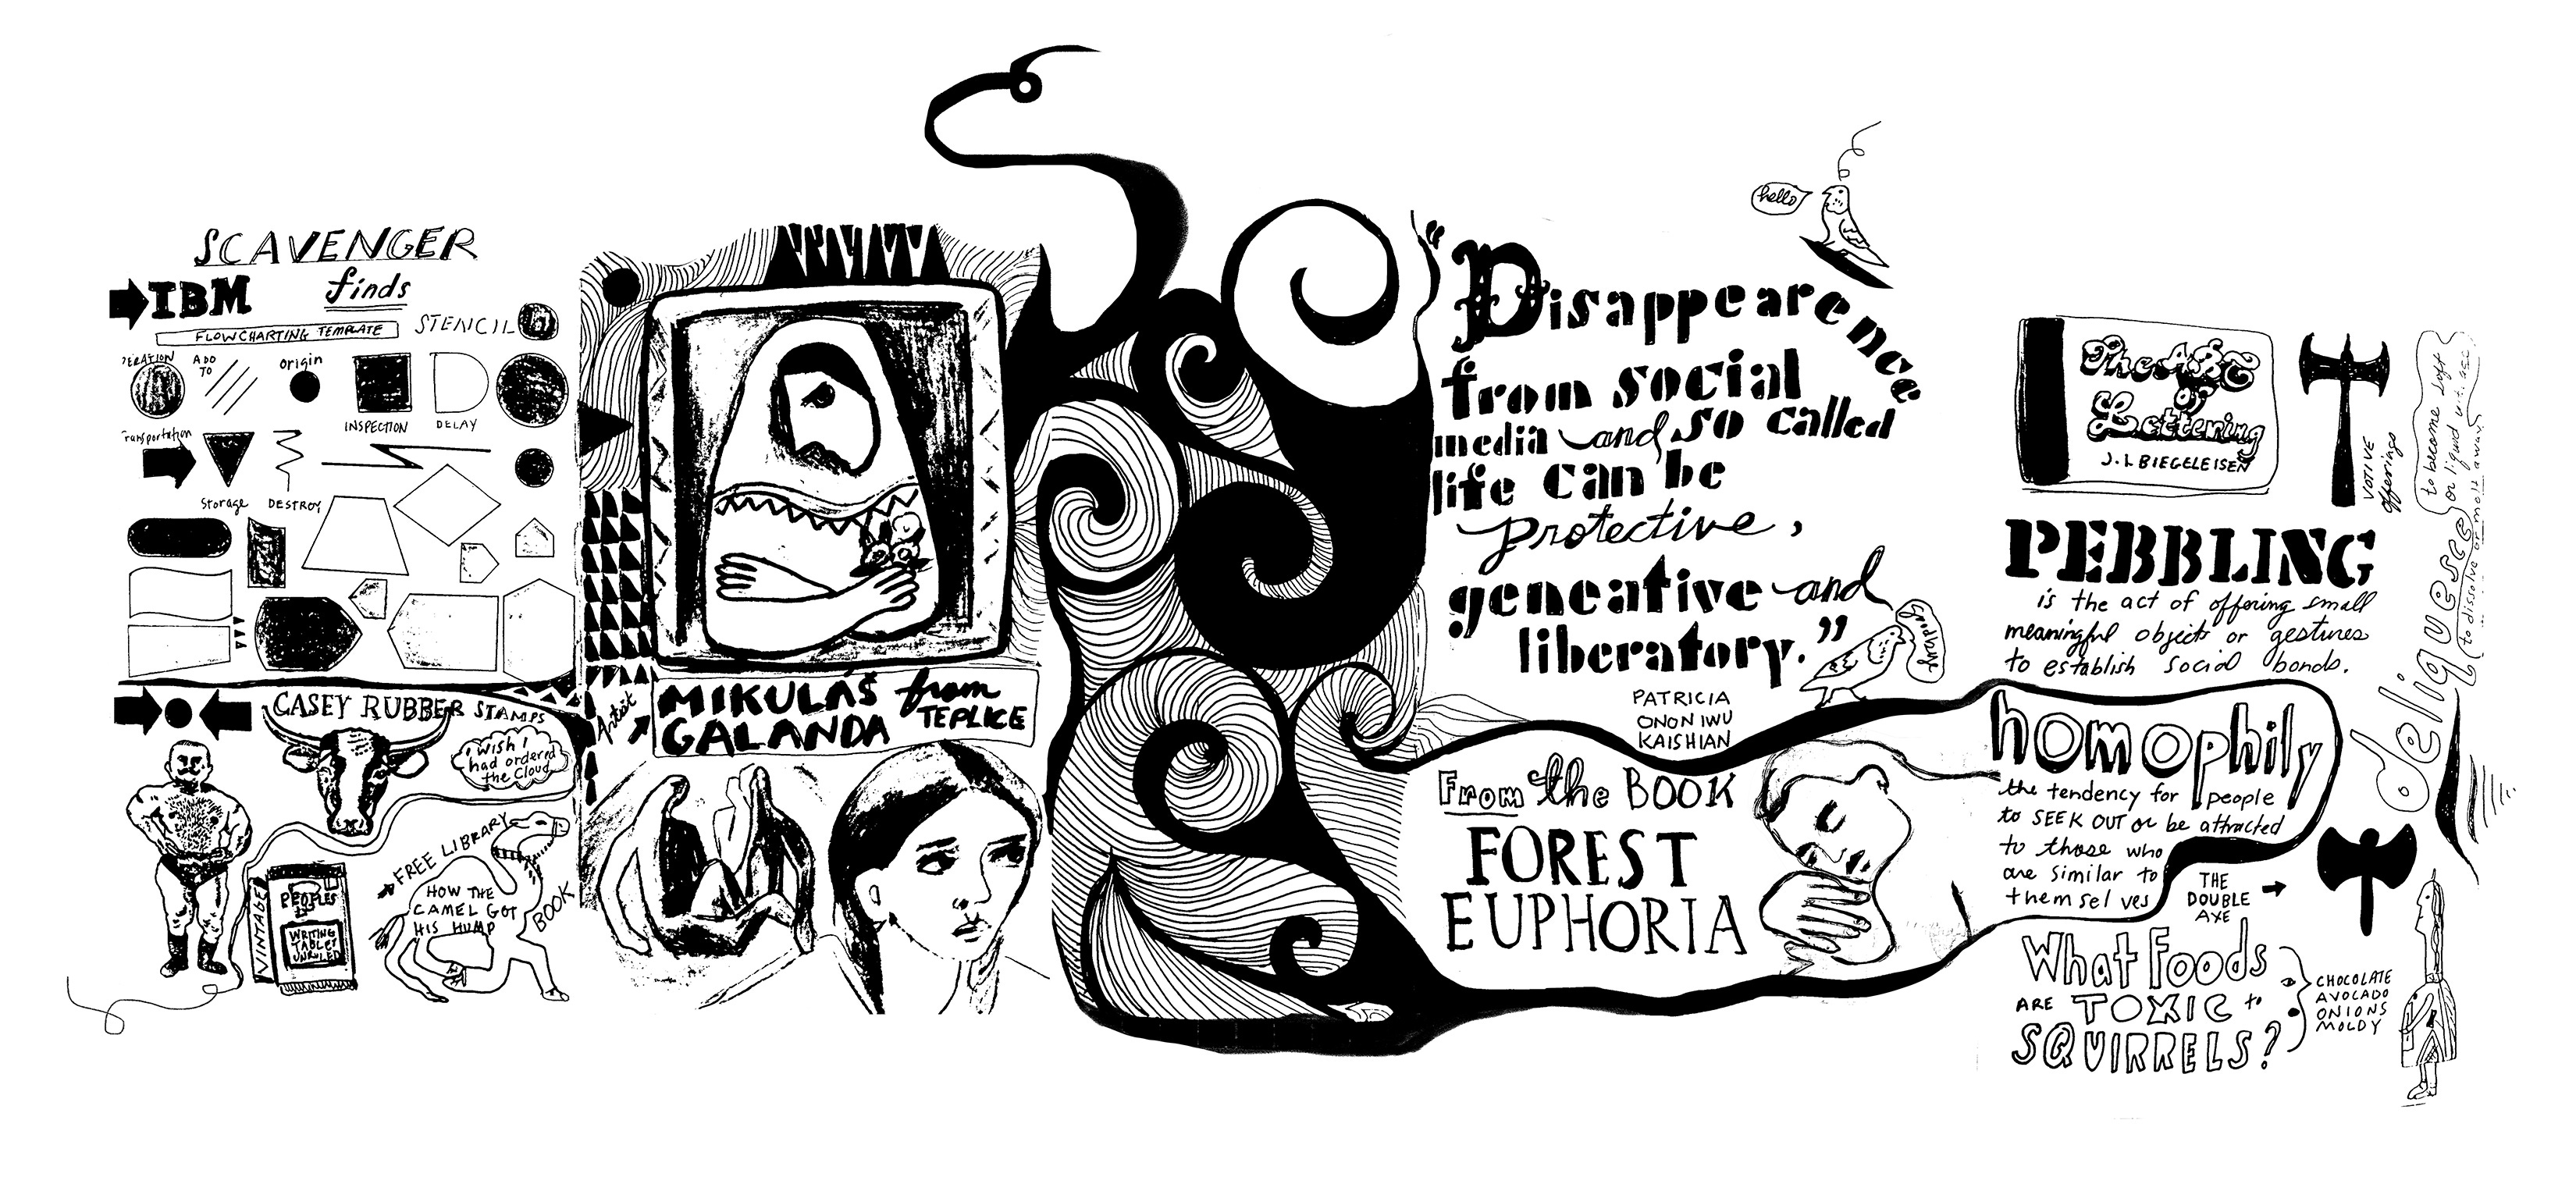 SCAVENGER
finds
IBM
FLOWCHARTING TEMPLATE
STENCIL
ERATION
ADD
TO
origin
INSPECTION
DELAY
Transportation
Storage
DESTROY
CASEY RUBBER STAMPS
I wish I
had ordered
the Cloud
VINTAGE
PEOPLES
WRITING
TABLET
UNRULED
FREE LIBRARY
BOOK
HOW THE
CAMEL GOT
HIS HUMP
Artist
MIKULÁŠ from
GALANDA TEPLICE
hello
"Disappearence
from social
media and so called
life can be
protective,
geneative and
liberatory."
chirp
PATRICIA
ONONIWU
KAISHIAN
From the BOOK
FOREST
EUPHORIA
The ABC
of
Lettering
J.I. BIEGELEISEN
VOTIVE
offerings
PEBBLING
is the act of offering small
meaningful objects or gestures
to establish social bonds.
deliquesce
to become soft
or liquid with age
(to dissolve or melt away)
homophily
the tendency for people
to SEEK OUT or be attracted
to those who
are similar to
themselves
THE
DOUBLE
AXE
What Foods
ARE TOXIC to
SQUIRRELS?
CHOCOLATE
AVOCADO
ONIONS
MOLDY